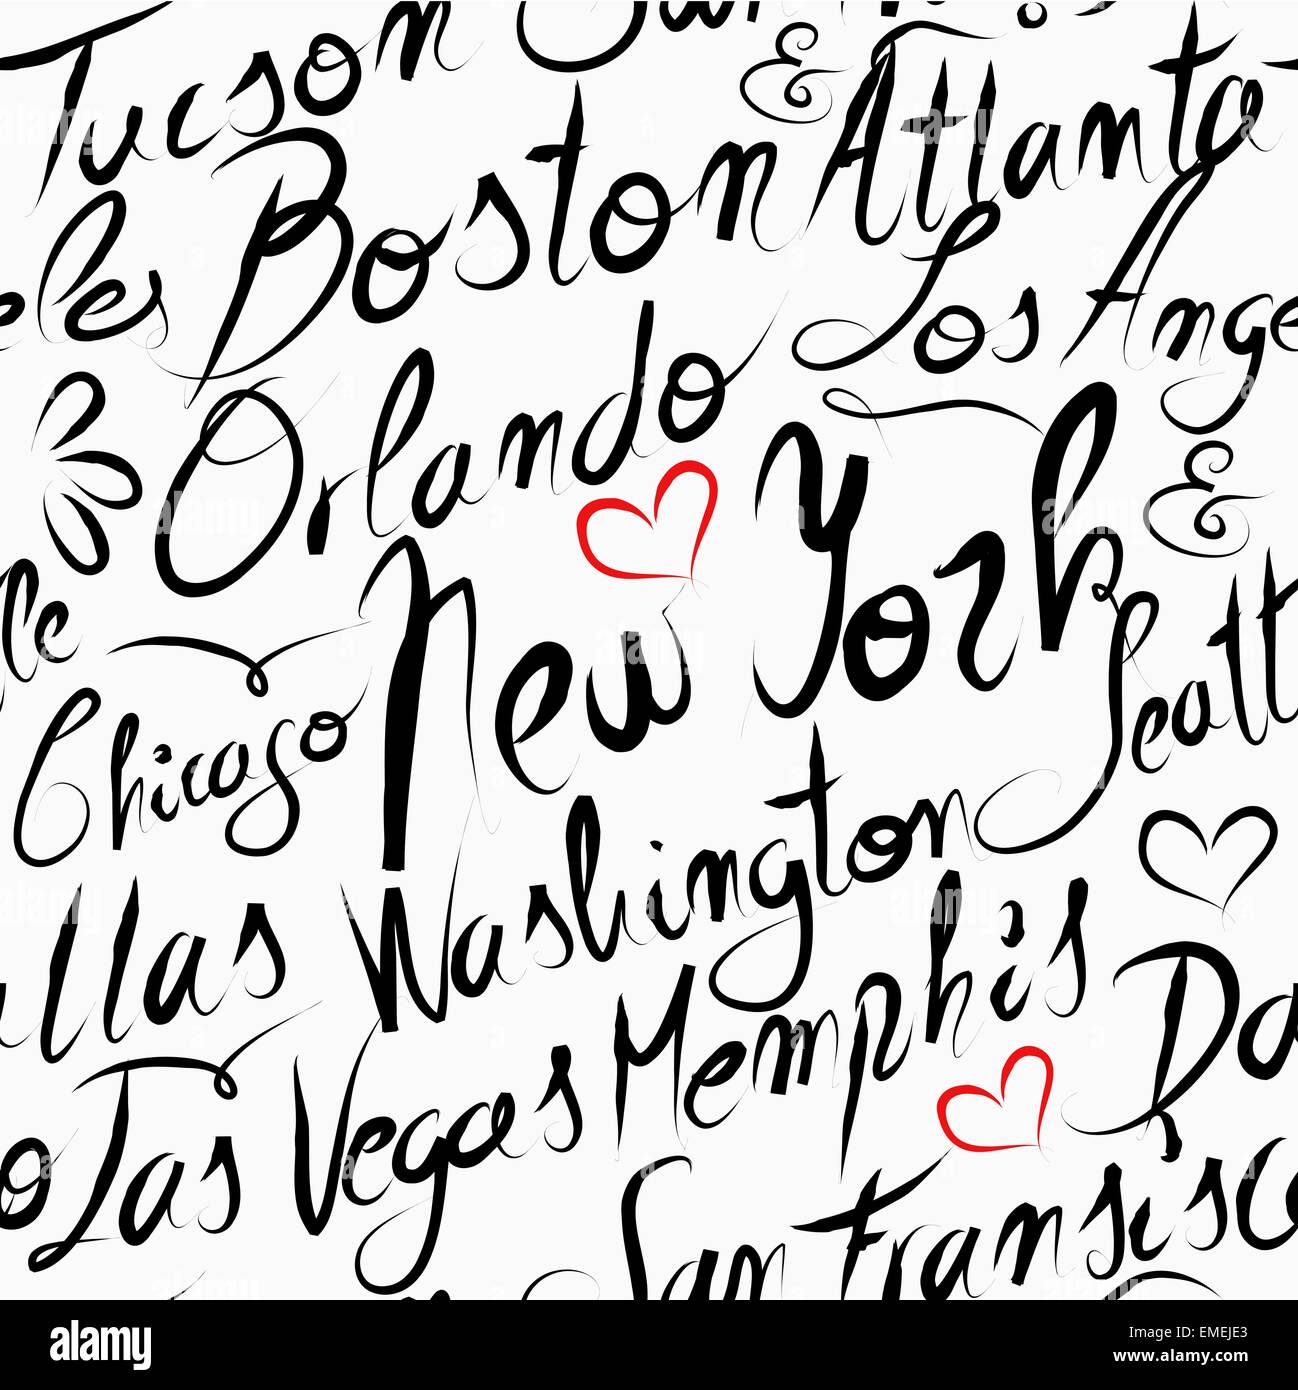 Tucson San
&
Boston Atlanta
eles
Los Ange
Orlando
New York
&
le
Seatt
Chicago
Washington
allas
Memphis
Da
o Las Vegas
San Fransisc
alamy
Image ID: EMEJE3
www.alamy.com